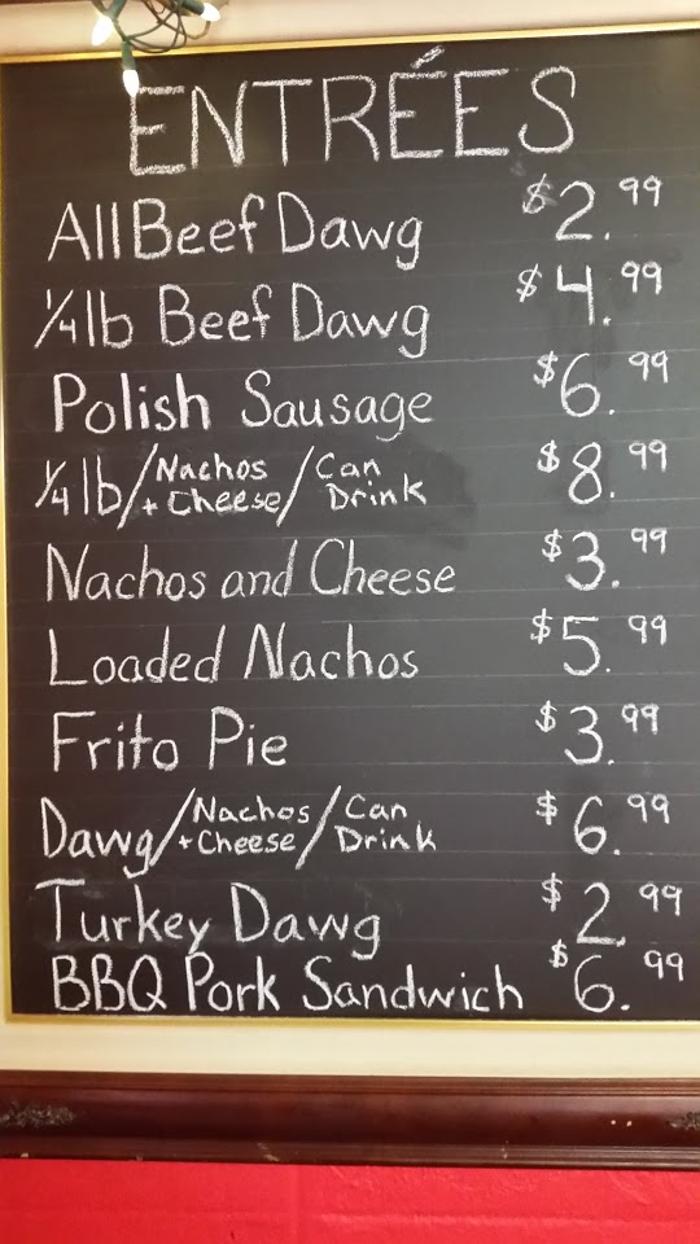 ENTRÉES
All Beef Dawg $2.99
1/4 lb Beef Dawg $4.99
Polish Sausage $6.99
1/4 lb/Nachos + Cheese/Can Drink $8.99
Nachos and Cheese $3.99
Loaded Nachos $5.99
Frito Pie $3.99
Dawg/Nachos + Cheese/Can Drink $6.99
Turkey Dawg $2.99
BBQ Pork Sandwich $6.99